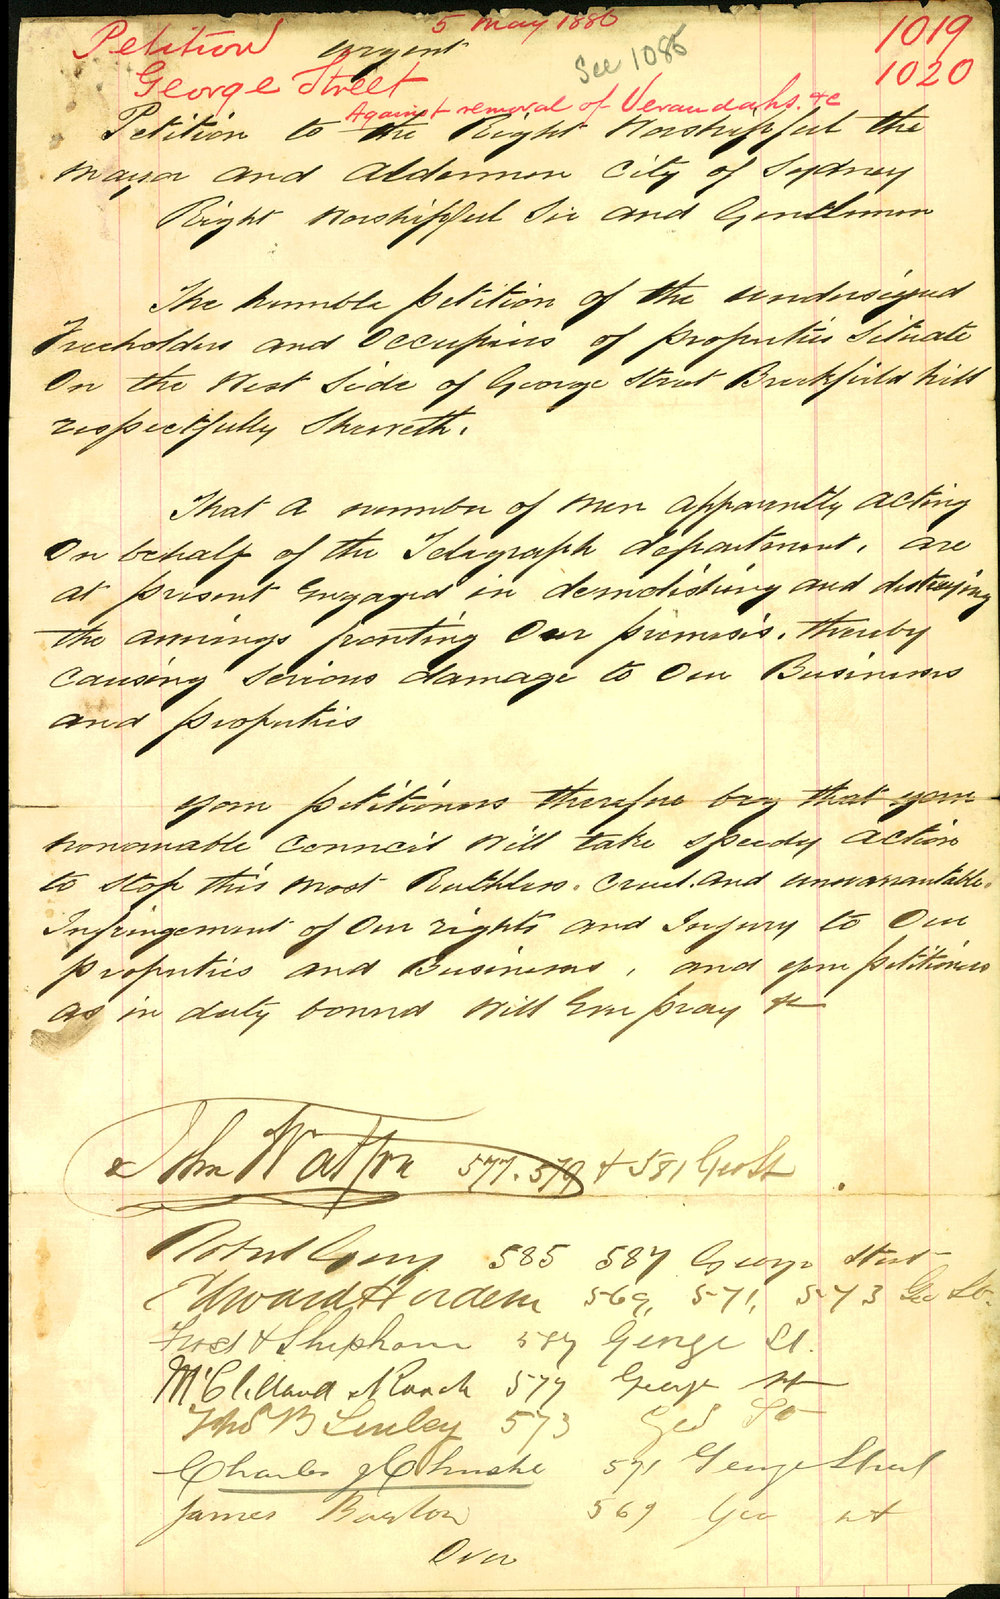 5 May 1886
1019
Petition urgent
See 1086
1020
George Street
Against removal of Verandahs. &c
Petition to the Right Worshipful the
Mayor and Aldermen City of Sydney
Right Worshipful Sir and Gentlemen
The humble petition of the undersigned
Freeholders and Occupiers of properties Situate
On the West Side of George Street Brickfield hill
respectfully Sheweth.
That a number of men apparently acting
On behalf of the Telegraph department. are
at present Engaged in demolishing and destroying
the awnings fronting Our premises. thereby
Causing Serious damage to Our Business
and properties
your petitioners therefore beg that your
Honourable Council Will take speedy action
to Stop this Most Ruthless. Cruel. and unwarrantable.
Infringement of Our rights and Injury to Our
properties and Business, and your petitioners
as in duty bound Will Ever pray &c
John Watson 577. 579 & 581 Geo St
Robert 585 587 George Street
Edward Hordern 569, 571, 573 Geo St.
& Shipham 587 George St.
McClelland & Roach 577 George St
Thos B 573 Geo St
Charles J 571 George Street
James Barlow 569 Geo St
Over